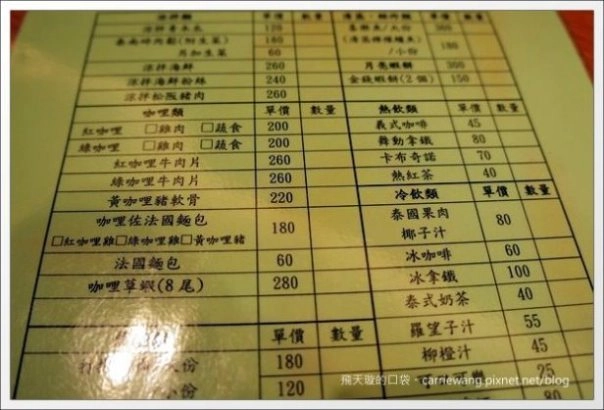 涼拌類 單價 數量
涼拌青木瓜 120
泰南時肉鬆(附生菜) 160
另加生菜 60
涼拌海鮮 260
涼拌海鮮粉絲 240
涼拌松阪豬肉 260
咖哩類 單價 數量
紅咖哩 □雞肉 □蔬食 200
綠咖哩 □雞肉 □蔬食 200
紅咖哩牛肉片 260
綠咖哩牛肉片 260
黃咖哩豬軟骨 220
咖哩佐法國麵包 180
□紅咖哩雞□綠咖哩雞□黃咖哩豬
法國麵包 60
咖哩草蝦(8尾) 280
單價 數量
180
小份 120
單價 數量
/大份 360
/小份 180
月亮蝦餅 300
金錢蝦餅(2個) 150
熱飲類 單價 數量
義式咖啡 45
舞動拿鐵 80
卡布奇諾 70
熱紅茶 40
冷飲類 單價 數量
泰國果肉椰子汁 80
冰咖啡 60
冰拿鐵 100
泰式奶茶 40
羅望子汁 55
柳橙汁 45
25
飛天璇的口袋。carriewang.pixnet.net/blog